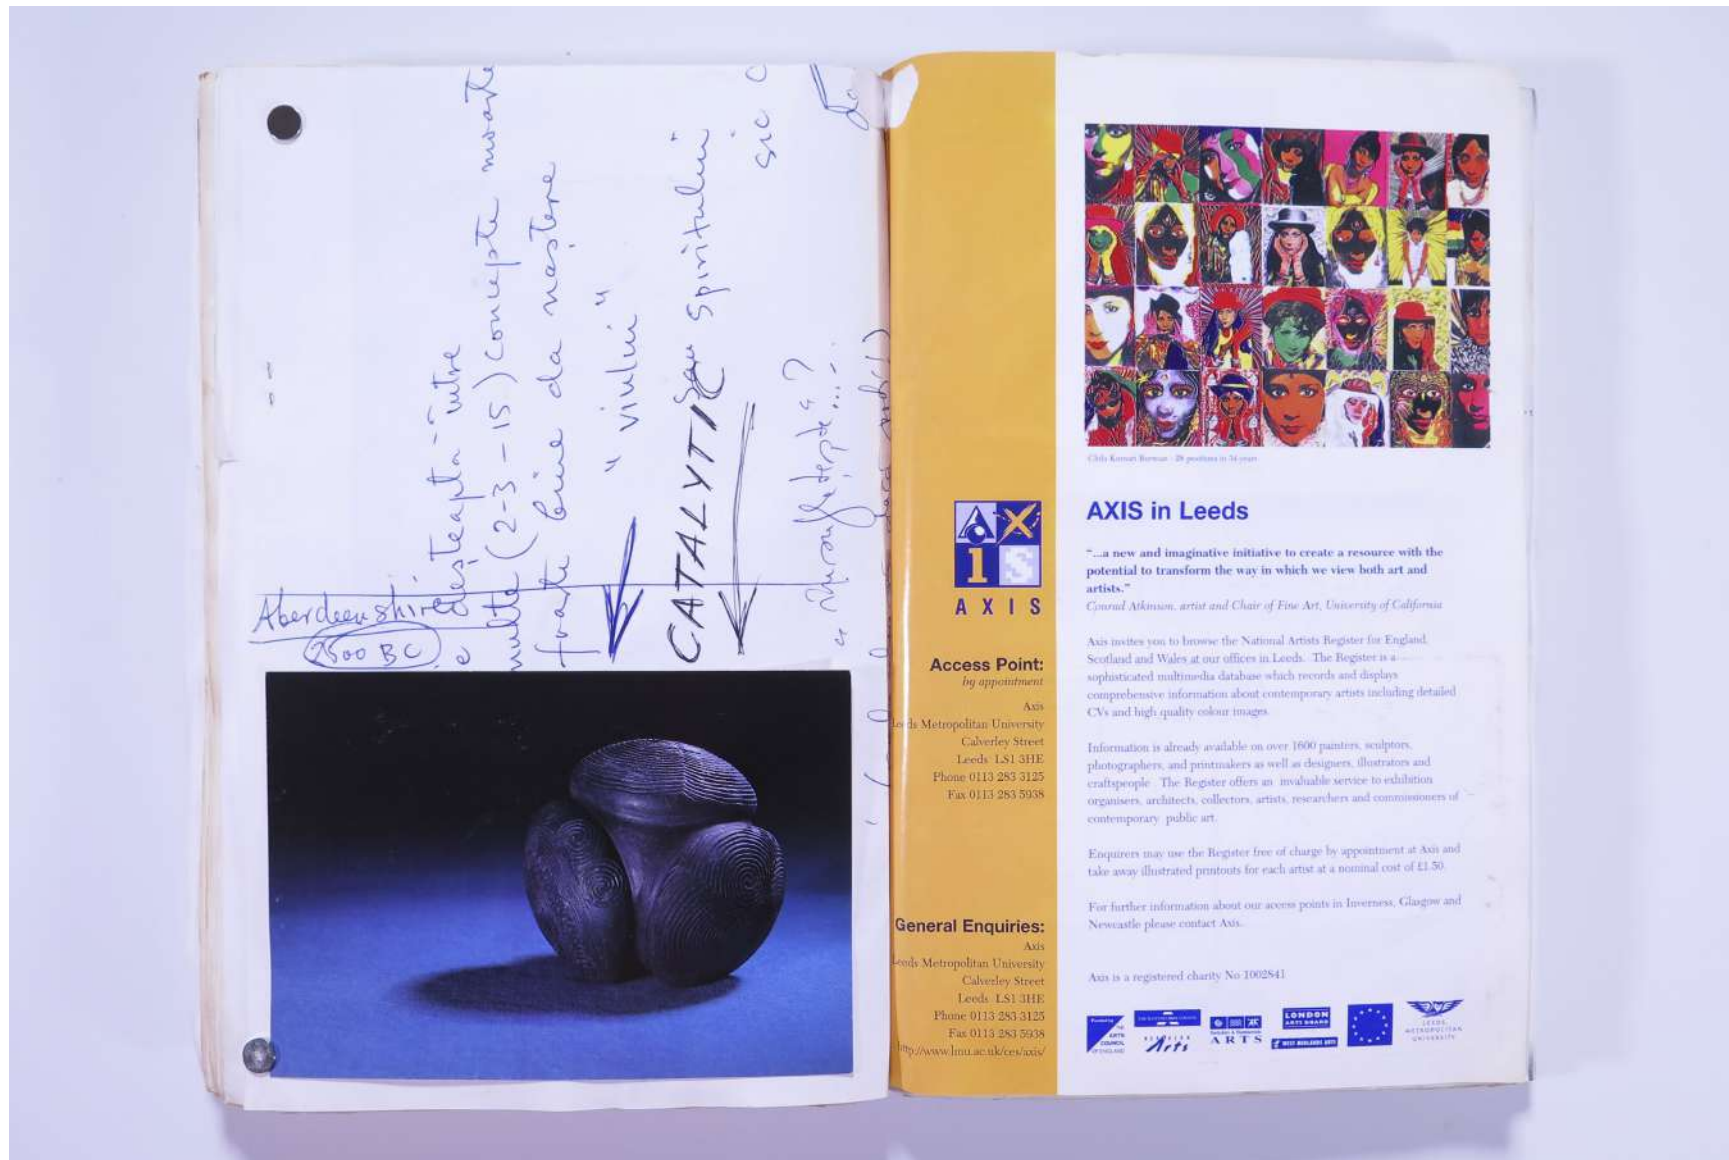 Aberdeenshire
2500 BC
deșteaptă între
multe (2-3-15) concepte moarte
foarte bine da naștere
"viului"
CATALYTIC sau Spiritului
sic
AXIS
AXIS
Access Point:
by appointment
Axis
Leeds Metropolitan University
Calverley Street
Leeds LS1 3HE
Phone 0113 283 3125
Fax 0113 283 5938
General Enquiries:
Axis
Leeds Metropolitan University
Calverley Street
Leeds LS1 3HE
Phone 0113 283 3125
Fax 0113 283 5938
http://www.lmu.ac.uk/ces/axis/
Chila Kumari Burman - 28 positions in 34 years
AXIS in Leeds
"...a new and imaginative initiative to create a resource with the
potential to transform the way in which we view both art and
artists."
Conrad Atkinson, artist and Chair of Fine Art, University of California
Axis invites you to browse the National Artists Register for England,
Scotland and Wales at our offices in Leeds. The Register is a
sophisticated multimedia database which records and displays
comprehensive information about contemporary artists including detailed
CVs and high quality colour images.
Information is already available on over 1600 painters, sculptors,
photographers, and printmakers as well as designers, illustrators and
craftspeople The Register offers an invaluable service to exhibition
organisers, architects, collectors, artists, researchers and commissioners of
contemporary public art.
Enquirers may use the Register free of charge by appointment at Axis and
take away illustrated printouts for each artist at a nominal cost of £1.50.
For further information about our access points in Inverness, Glasgow and
Newcastle please contact Axis.
Axis is a registered charity No 1002841
THE
ARTS
COUNCIL
OF ENGLAND
Arts
ARTS
LONDON
ARTS BOARD
WEST MIDLANDS ARTS
LEEDS
METROPOLITAN
UNIVERSITY